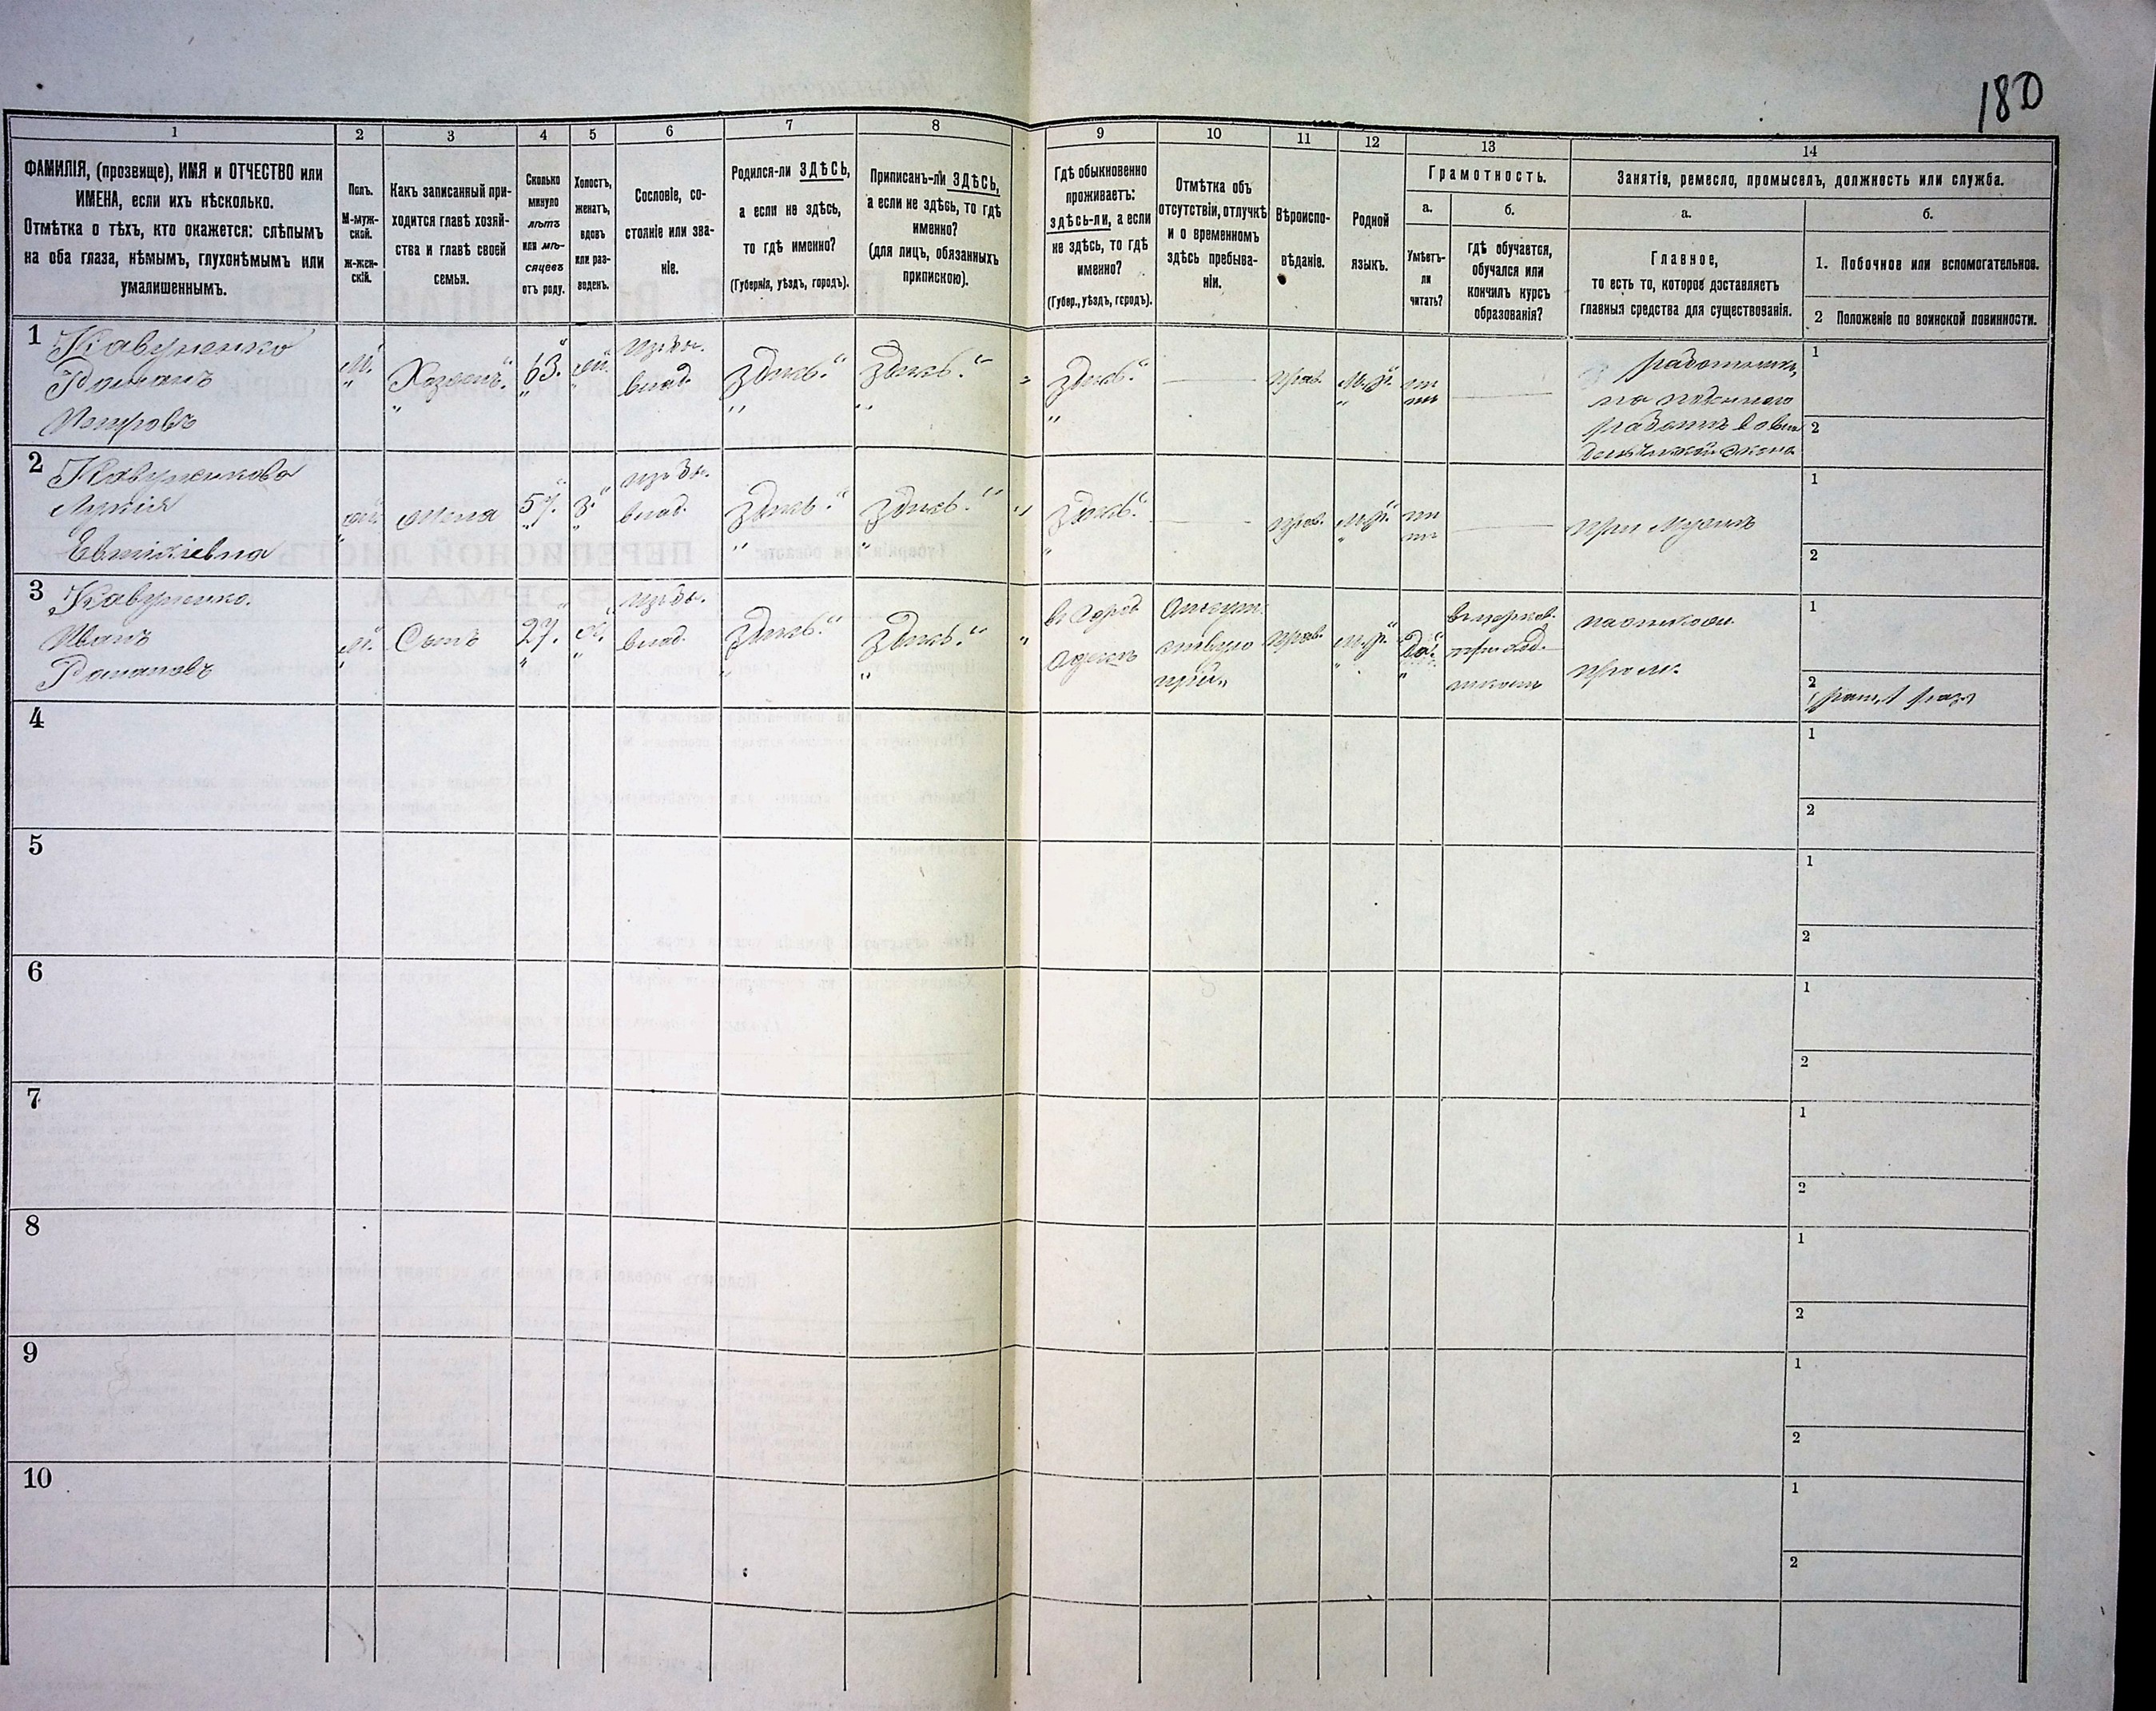 180
1
2
3
4
5
6
7
8
9
10
11
12
13
14
ФАМИЛІЯ, (прозвище), ИМЯ и ОТЧЕСТВО или
ИМЕНА, если ихъ нѣсколько.
Отмѣтка о тѣхъ, кто окажется: слѣпымъ
на оба глаза, нѣмымъ, глухонѣмымъ или
умалишеннымъ.
Полъ.
М-муж-
ской.
ж-жен-
скій.
Какъ записанный при-
ходится главѣ хозяй-
ства и главѣ своей
семьи.
Сколько
минуло
лѣтъ
или мѣ-
сяцевъ
отъ роду.
Холостъ,
женатъ,
вдовъ
или раз-
веденъ.
Сословіе, со-
стояніе или зва-
ніе.
Родился-ли ЗДѢСЬ,
а если не здѣсь,
то гдѣ именно?
(Губернія, уѣздъ, городъ).
Приписанъ-ли ЗДѢСЬ,
а если не здѣсь, то гдѣ
именно?
(для лицъ, обязанныхъ
припискою).
Гдѣ обыкновенно
проживаетъ:
здѣсь-ли, а если
не здѣсь, то гдѣ
именно?
(Губер., уѣздъ, городъ).
Отмѣтка объ
отсутствіи, отлучкѣ
и о временномъ
здѣсь пребыва-
ніи.
Вѣроиспо-
вѣданіе.
Родной
языкъ.
Грамотность.
а.
Умѣетъ-
ли
читать?
б.
гдѣ обучается,
обучался или
кончилъ курсъ
образованія?
Занятіе, ремесло, промыселъ, должность или служба.
а.
Главное,
то есть то, которое доставляетъ
главныя средства для существованія.
б.
1. Побочное или вспомогательное.
2 Положеніе по воинской повинности.
1
Кавуненко
Романъ
Петровъ
М.
Хозяинъ.
63.
жен.
изъ б.
влад.
Здѣсь.
Здѣсь.
Здѣсь.
Прав.
Мр.
нѣтъ
работникъ
1
2
2
Кавуненкова
Евтихіевна
жен.
жена
57.
З.
изъ б.
влад.
Здѣсь.
Здѣсь.
Здѣсь.
Прав.
Мр.
нѣтъ
При Мужѣ
1
2
3
Кавуненко.
Иванъ
Романовъ
М.
Сынъ
27.
Х.
изъ б.
влад.
Здѣсь.
Здѣсь.
въ Город
Одессѣ
Прав.
Мр.
Да
1
2
4
1
2
5
1
2
6
1
2
7
1
2
8
1
2
9
1
2
10
1
2